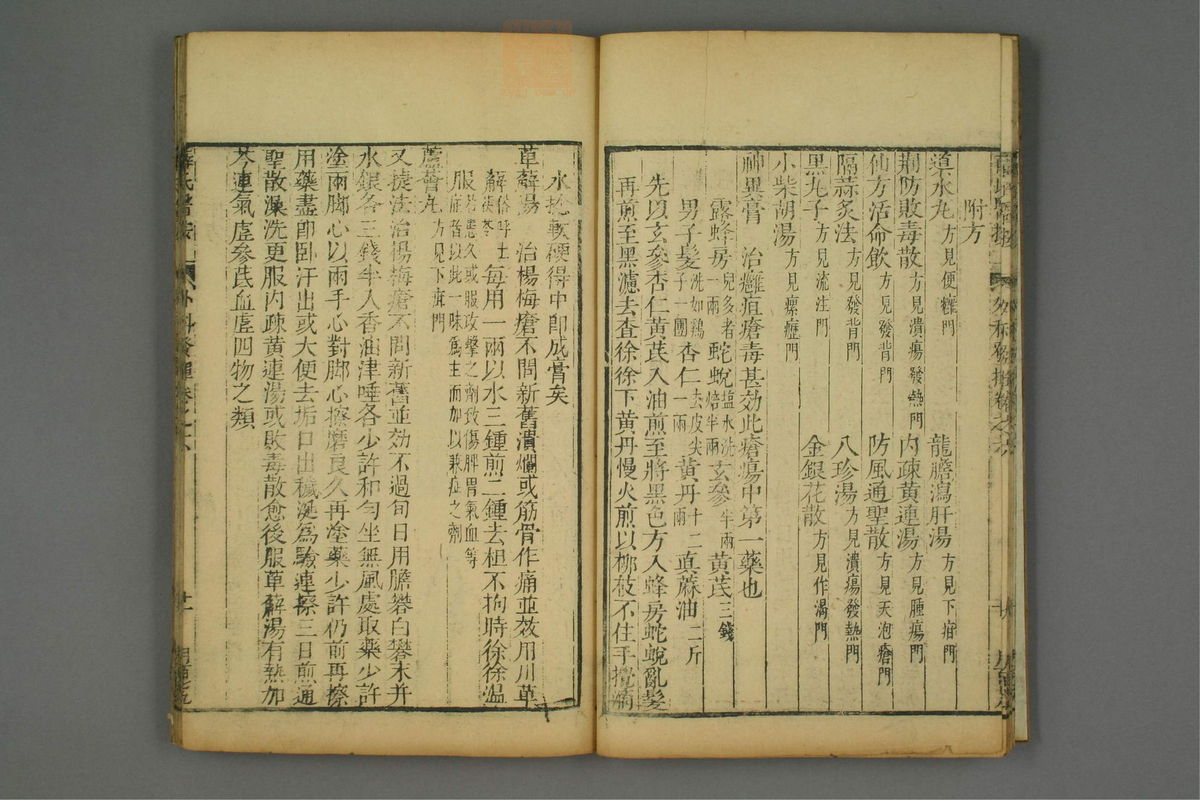 附方
導水丸方見便癰門 龍膽瀉肝湯方見下疳門
荆防敗毒散方見潰瘍發熱門 內疎黃連湯方見腫瘍門
仙方活命飲方見發背門 防風通聖散方見天泡瘡門
隔蒜炙法方見發背門 八珍湯方見潰瘍發熱門
黑丸子方見流注門 金銀花散方見作渴門
小柴胡湯方見瘰癧門
神異膏 治癰疽瘡毒甚効此瘡瘍中第一藥也
露蜂房兒多者一兩 蛇蛻塩水洗焙半兩 玄參半兩 黃芪三錢
男子髮洗如鷄子一團 杏仁去皮尖一兩 黃丹十二兩 真蔴油二斤
先以玄參杏仁黃芪入油煎至將黑色方入蜂房蛇蛻亂髮
再煎至黑濾去查徐徐下黃丹慢火煎以柳枝不住手攪滴
水捻軟硬得中即成膏矣
萆薢湯 治楊梅瘡不問新舊潰爛或筋骨作痛並效用川萆
薢俗呼土茯苓每用一兩以水三鍾煎二鍾去柤不拘時徐徐温
服若患久或服攻擊之劑致傷脾胃氣血等症者以此一味爲主而加以兼症之劑
蘆薈丸方見下疳門
又捷法治楊梅瘡不問新舊並効不過旬日用膽礬白礬末并
水銀各三錢半入香油津唾各少許和勻坐無風處取藥少許
塗兩脚心以兩手心對脚心擦磨良久再塗藥少許仍前再擦
用藥盡即卧汗出或大便去垢口出穢涎爲驗連擦三日煎通
聖散澡洗更服內疎黃連湯或敗毒散愈後服萆薢湯有熱加
芩連氣虛參芪血虛四物之類
薛氏醫按 外科發揮卷之六